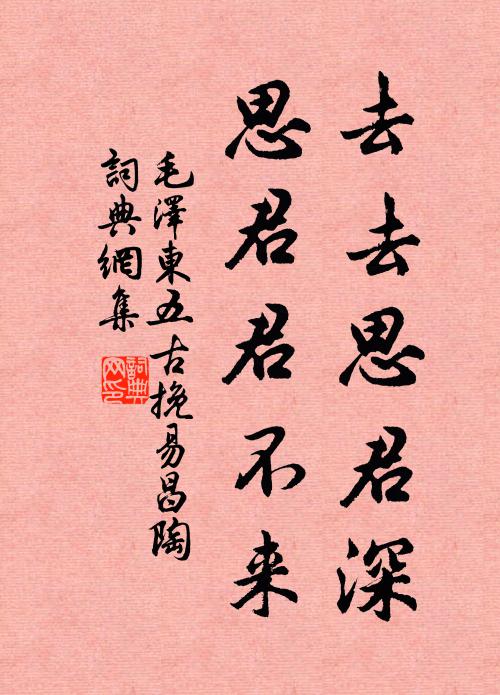 去去思君深
思君君不来
毛澤東五古挽易昌陶
詞典網集
詞典
网印